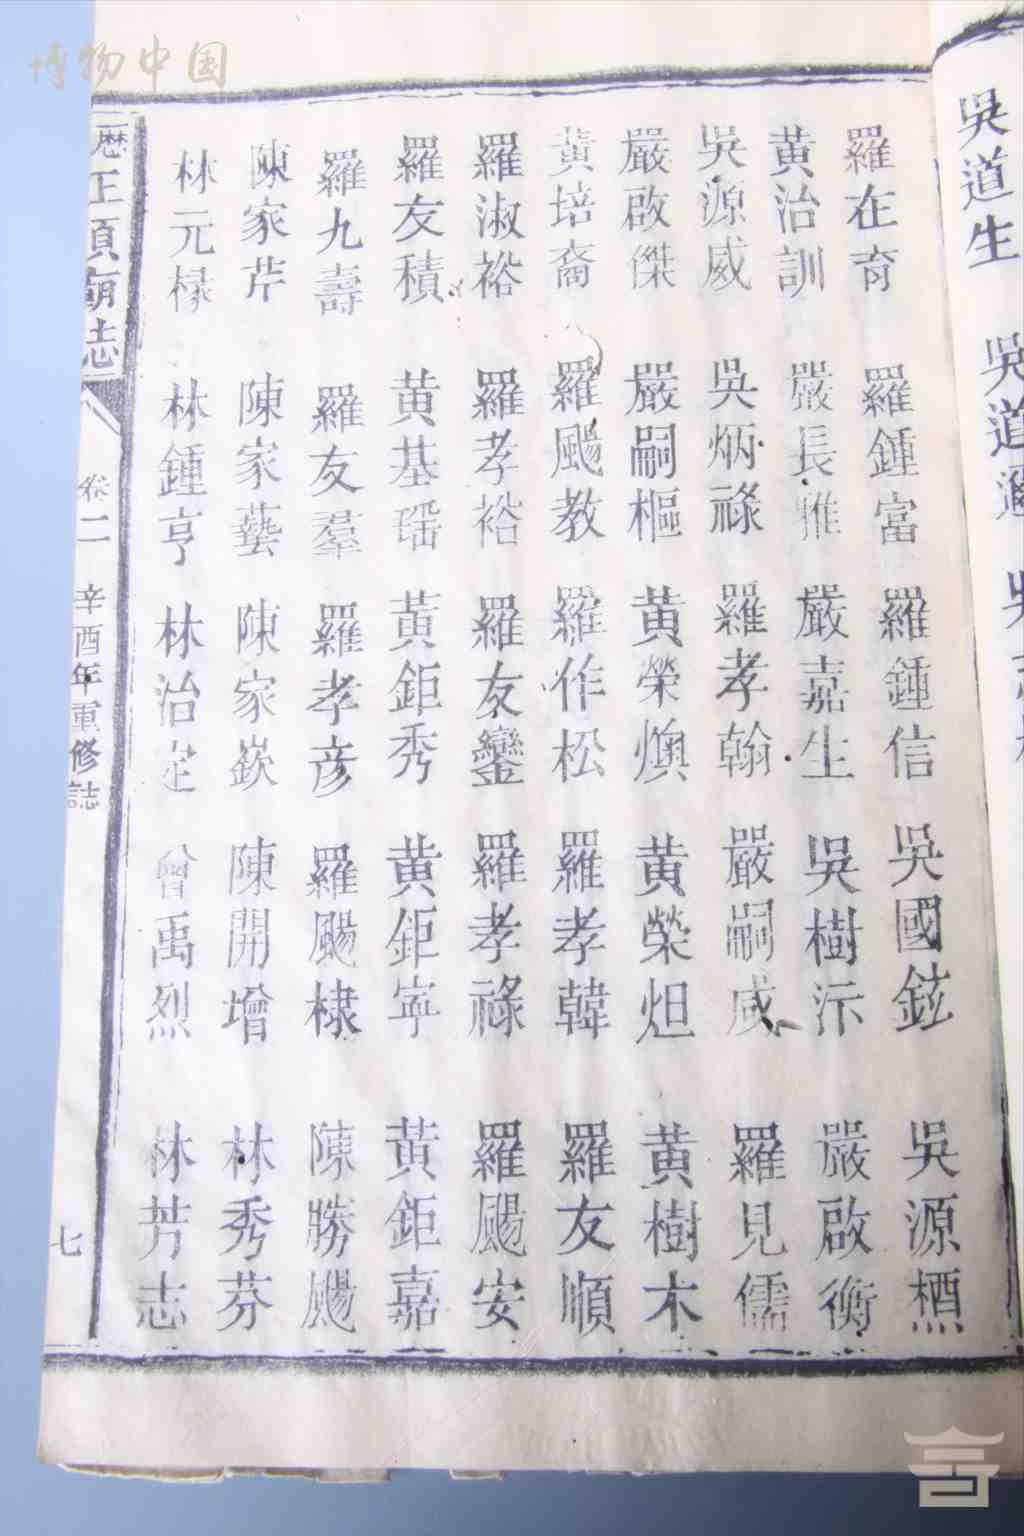 博物中国
吳道生 吳道
羅在育 羅鍾富 羅鍾信 吳國鉉 吳源栖
黃治訓 嚴長雅 嚴嘉生 吳樹沶 嚴啟衡
吳源威 吳炳祿 羅孝翰 嚴嗣咸 羅見儒
嚴啟傑 嚴嗣樞 黃榮燠 黃榮炟 黃樹木
黃培裔 羅颺教 羅作松 羅孝韓 羅友順
羅淑裕 羅孝裕 羅友鑾 羅孝祿 羅颺安
羅友積 黃基瑶 黃鉅秀 黃鉅寜 黃鉅嘉
羅九壽 羅友羣 羅孝彦 羅颺棣 陳勝颺
陳家芹 陳家藝 陳家嶔 陳開增 林秀芬
林元椽 林鍾亨 林治定 曾禹烈 林芳志
歷正頂廟志 卷二 辛酉年重修誌 七